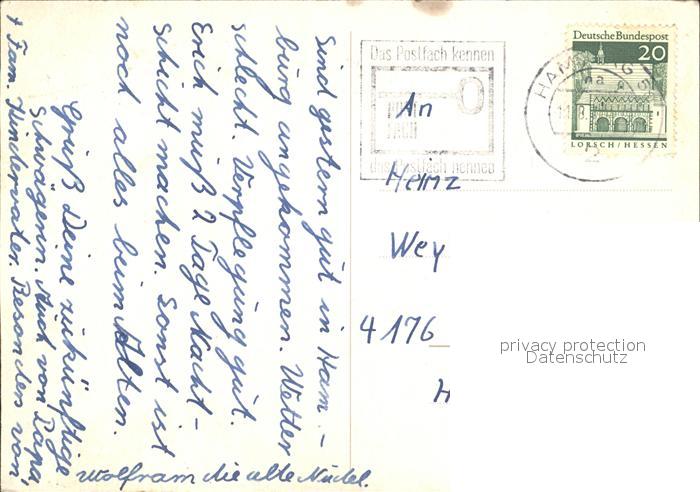 Sind gestern gut in Ham-
burg angekommen. Wetter
schlecht. Verpflegung gut.
Erich muß 2 Tage Nacht-
schicht machen. Sonst ist
noch alles beim Alten.
Gruß Deine zukünftige
Schwägerin. Auch von Papa
+ Fam. Hintervater. Besonders von,
Wolfram die alte Nudel.
Das Postfach kennen
das Postfach nennen
Deutsche Bundespost
20
LORSCH/HESSEN
HAMBURG
An
Heinz
Wey
4176
H
privacy protection
Datenschutz